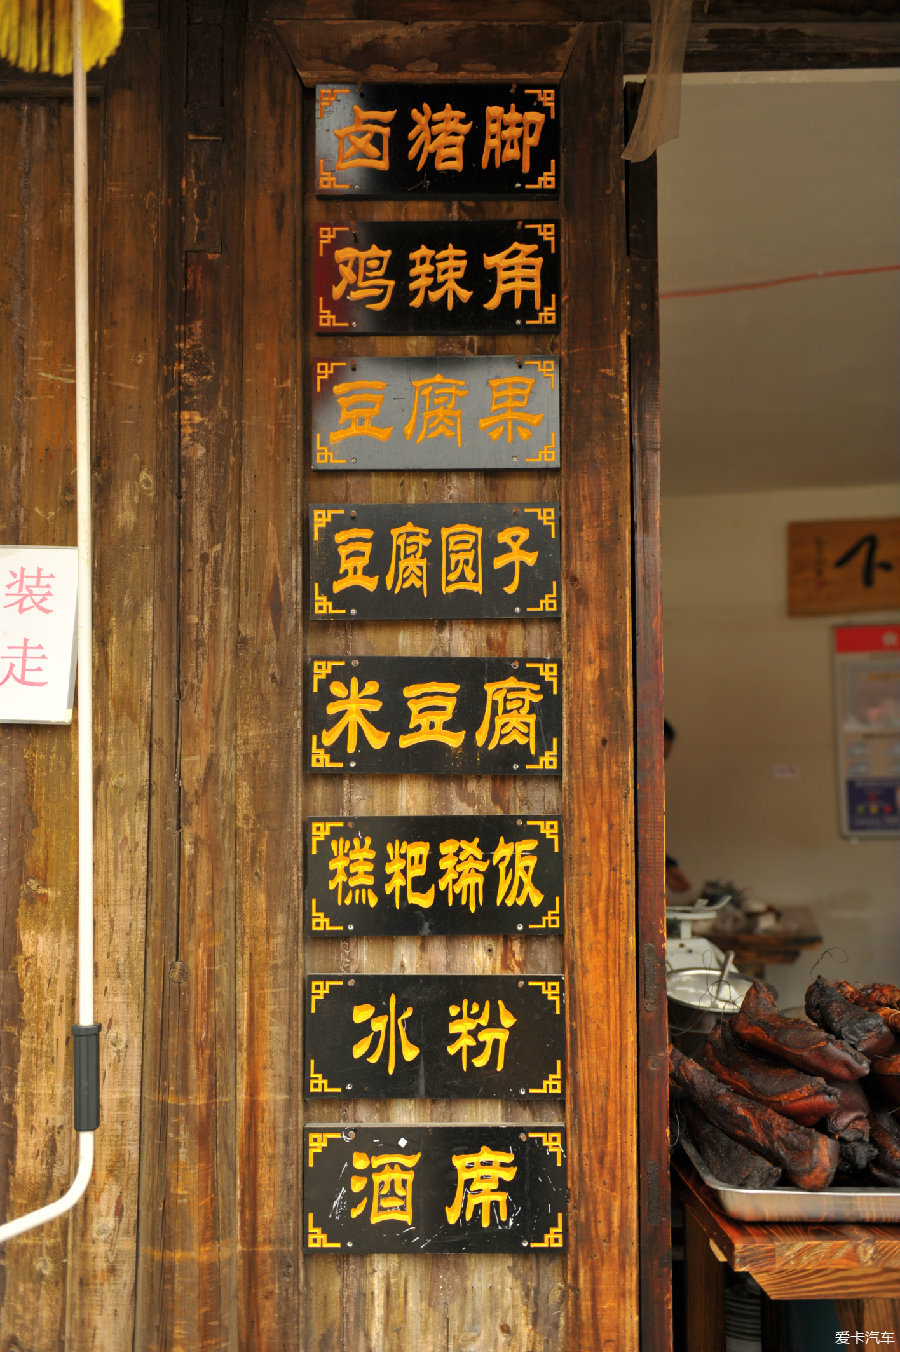 卤猪脚
鸡辣角
豆腐果
豆腐圆子
米豆腐
糕粑稀饭
冰粉
酒席
装
走
爱卡汽车